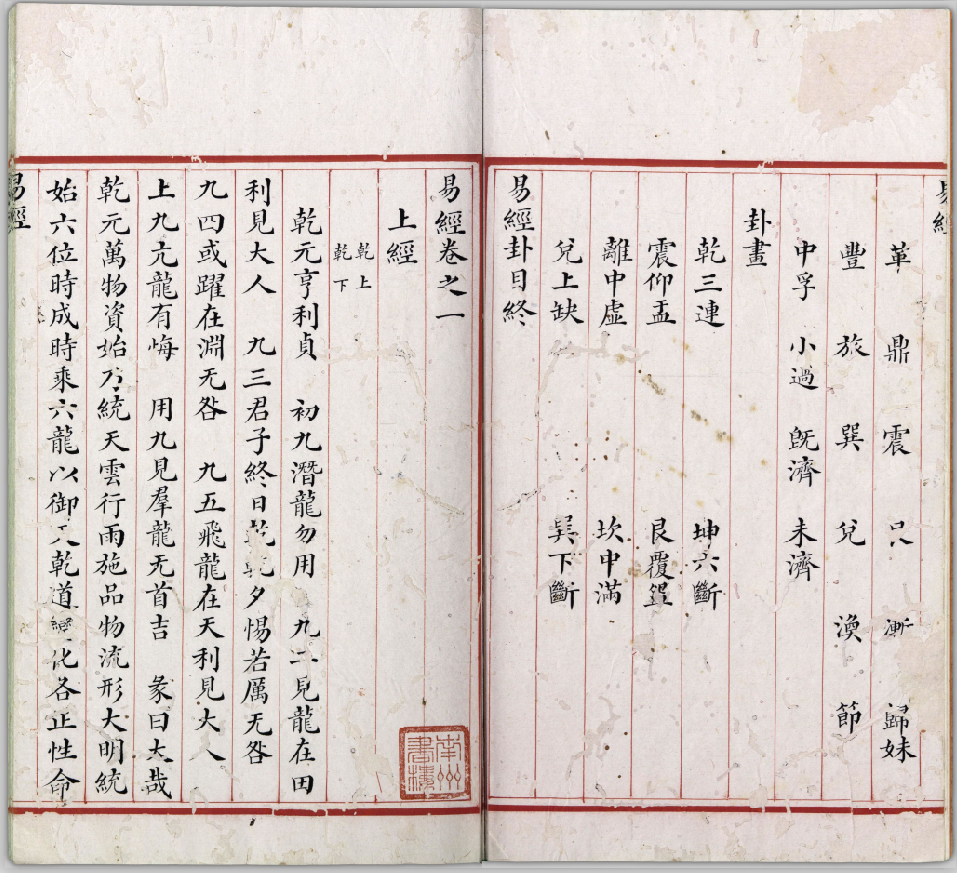 易經
革 鼎 震 漸 歸妹
豐 旅 巽 兌 渙 節
中孚 小過 既濟 未濟
卦畫
乾三連 坤六斷
震仰盂 艮覆盌
離中虛 坎中滿
兌上缺 巽下斷
易經卦目終
易經卷之一
上經
乾上
乾下
乾元亨利貞 初九潛龍勿用 九二見龍在田
利見大人 九三君子終日乾乾夕惕若厲无咎
九四或躍在淵无咎 九五飛龍在天利見大人
上九亢龍有悔 用九見羣龍无首吉 彖曰大哉
乾元萬物資始乃統天雲行雨施品物流形大明統
始六位時成時乘六龍以御天乾道變化各正性命
易經
南州書樓